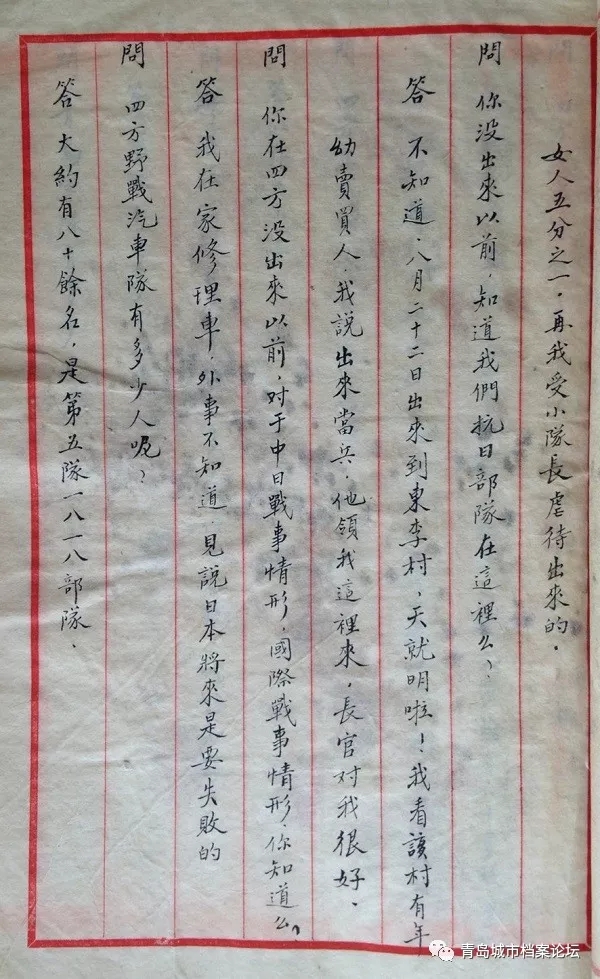 女人五分之一,再我受小隊長虐待出來的.
問 你没出來以前,知道我們抗日部隊在這裡么?
答 不知道.八月二十二日出來到東李村,天就明啦!我看該村有年
幼賣買人,我說出來當兵,他領我這裡來,長官对我很好.
問 你在四方没出來以前,对于中日戰事情形,國際戰事情形,你知道么?
答 我在家修理車,外事不知道 見說日本將來是要失敗的
問 四方野戰汽車隊有多少人呢?
答 大約有八十餘名,是第五隊一八一八部隊.
青岛城市档案论坛